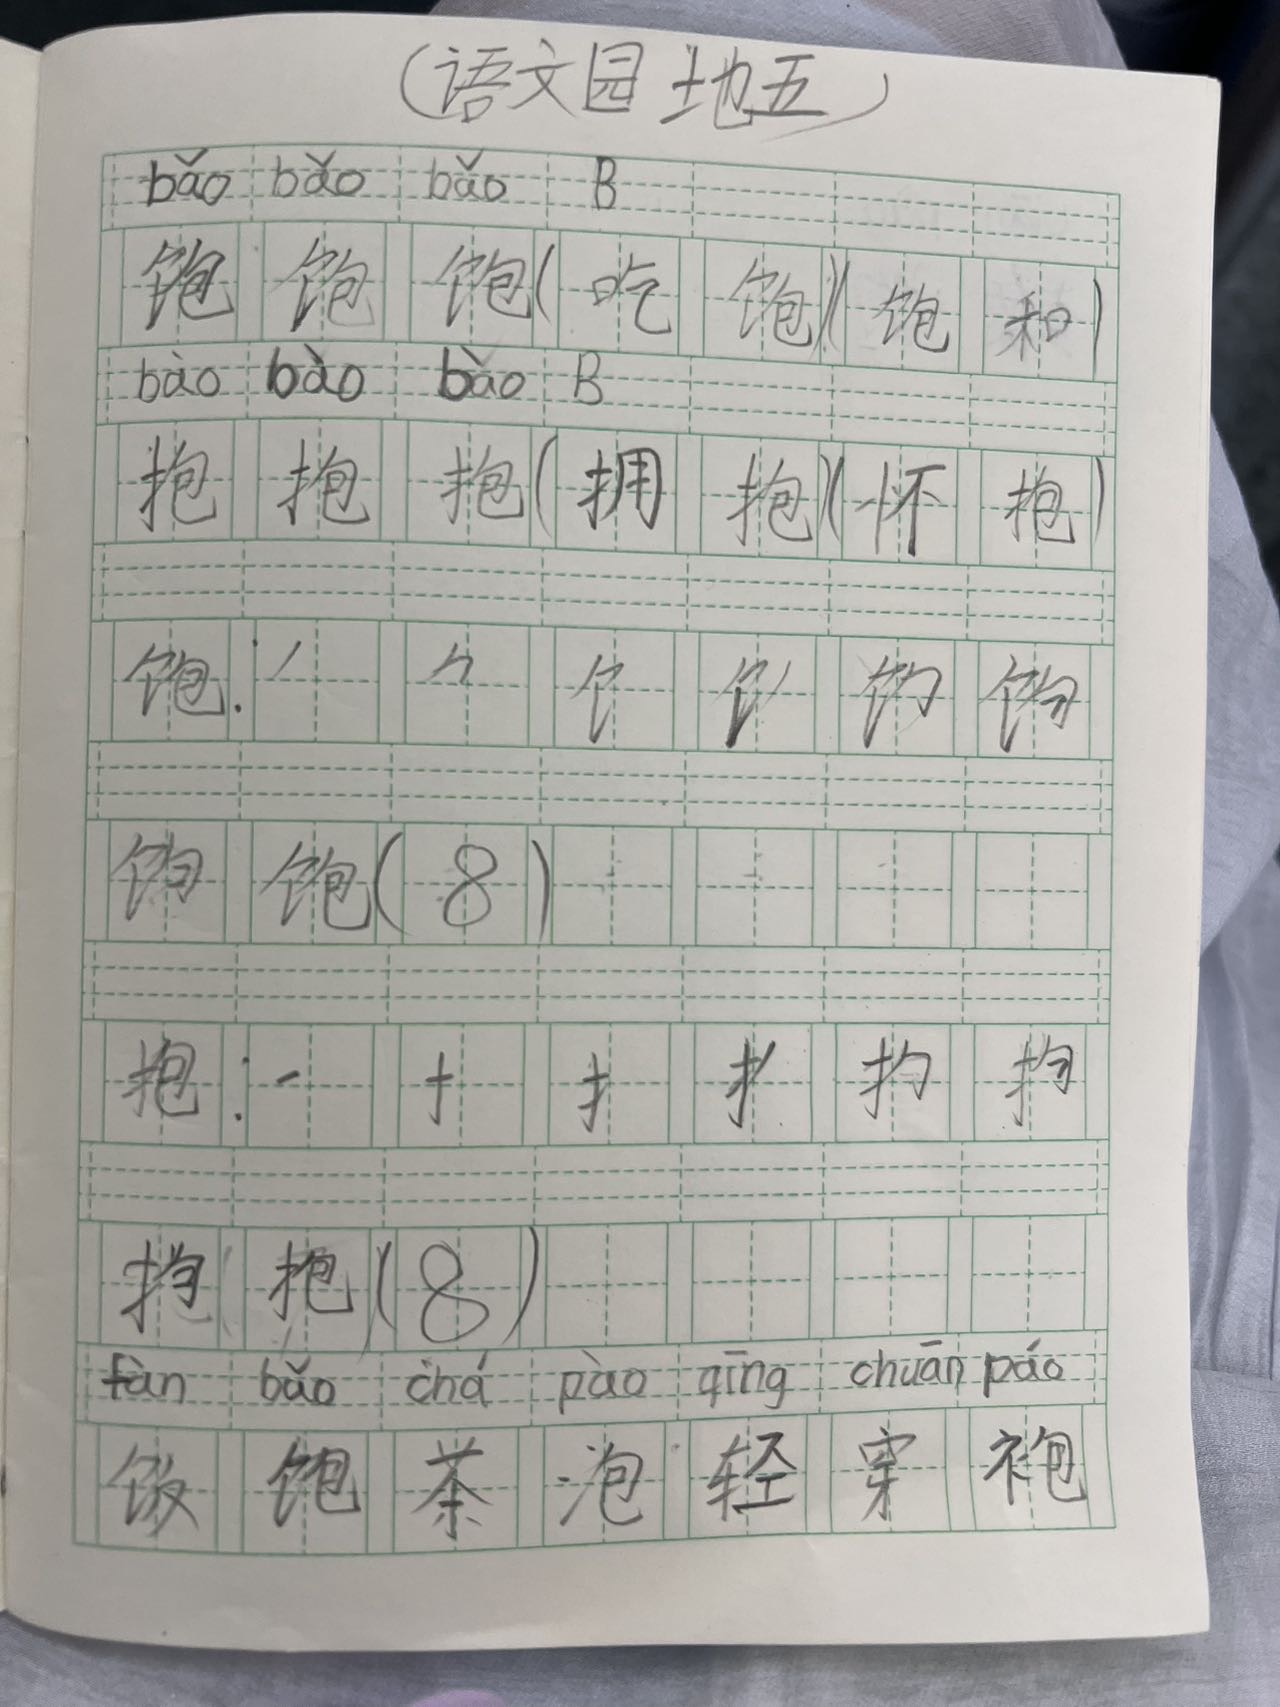 （语文园地五）
bǎo bǎo bǎo B
饱 饱 饱（吃饱）（饱和）
bào bào bào B
抱 抱 抱（拥抱）（怀抱）
饱：
饱（8）
抱：一 十 扌
抱（8）
fàn bǎo chá pào qīng chuān páo
饭 饱 茶 泡 轻 穿 袍